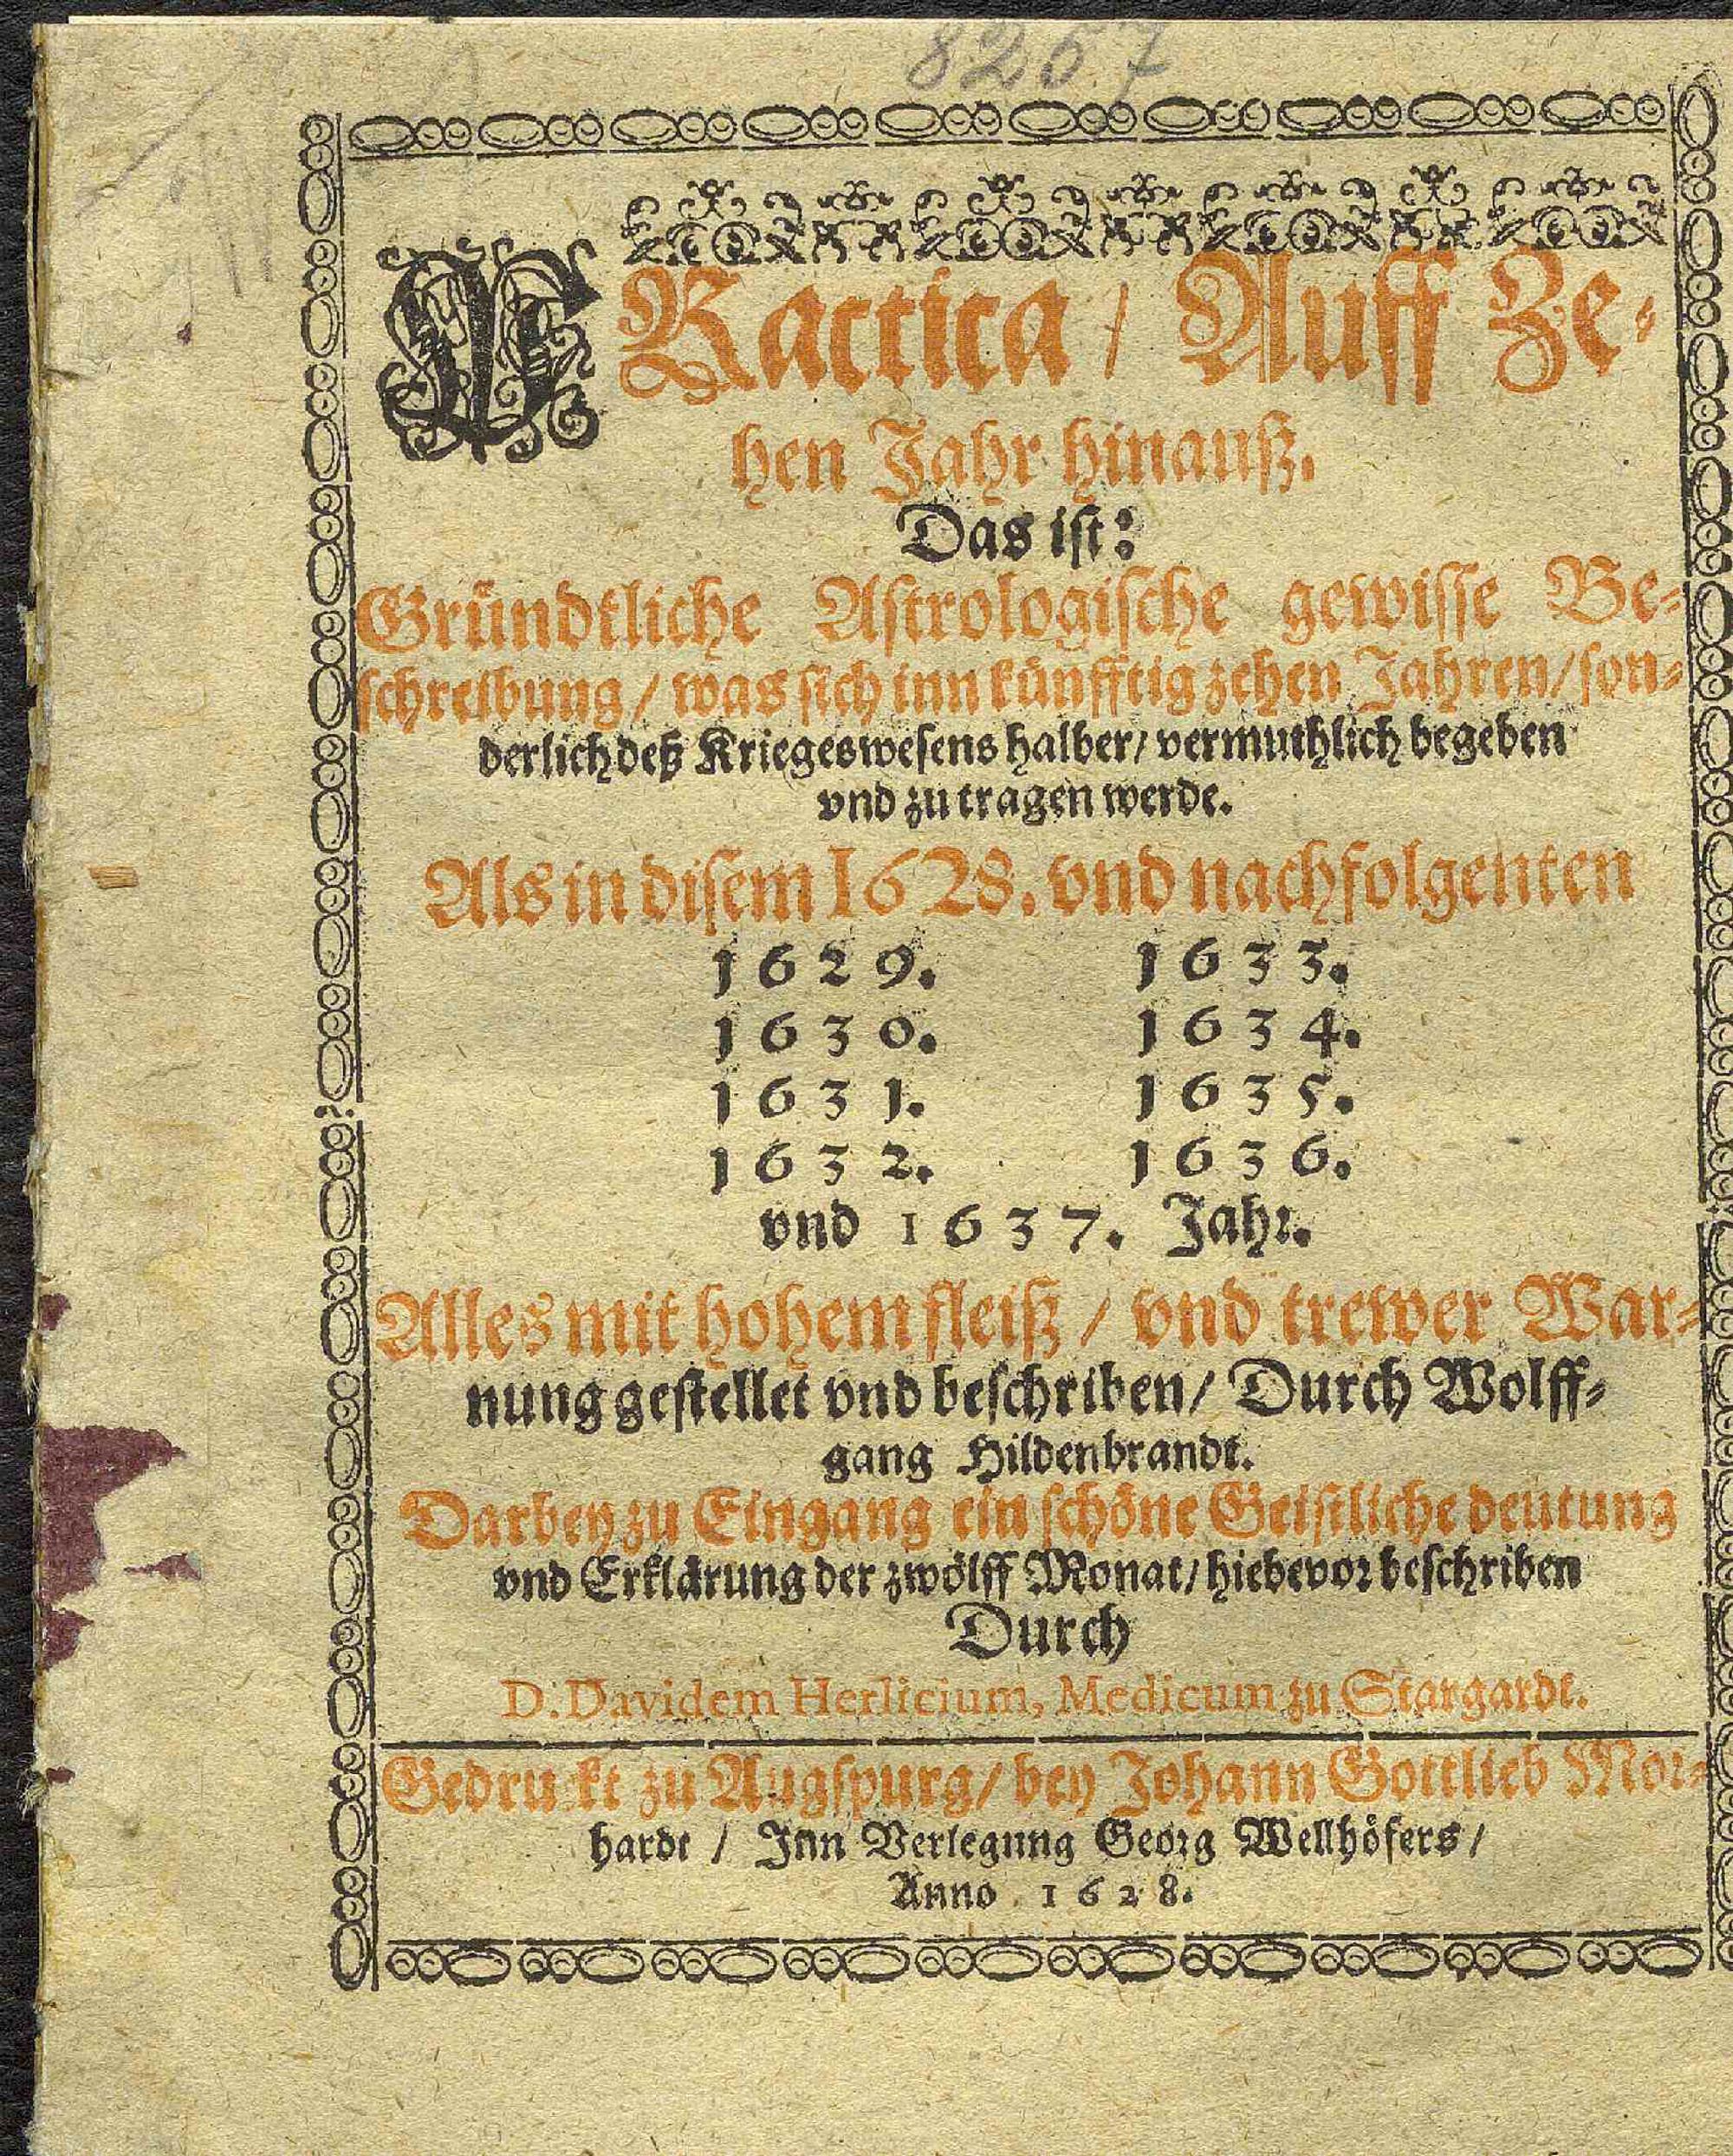 8267
PRactica / Auff Ze-
hen Jahr hinauß.
Das ist:
Gründtliche Astrologische gewisse Be-
schreibung / was sich inn künfftig zehen Jahren / son-
derlich deß Kriegeswesens halber / vermuthlich begeben
vnd zu tragen werde.
Als in disem 1628. vnd nachfolgenten
1629. 1633.
1630. 1634.
1631. 1635.
1632. 1636.
vnd 1637. Jahr.
Alles mit hohem fleiß / vnd trewer War-
nung gestellet vnd beschriben / Durch Wolff-
gang Hildenbrandt.
Darbey zu Eingang ein schöne Geistliche deutung
vnd Erklärung der zwölff Monat / hiebevor beschriben
Durch
D. Davidem Herlicium, Medicum zu Stargardt.
Gedruckt zu Augspurg / bey Johann Gottlieb Mor-
hardt / Inn Verlegung Georg Wellhöfers /
Anno 1628.